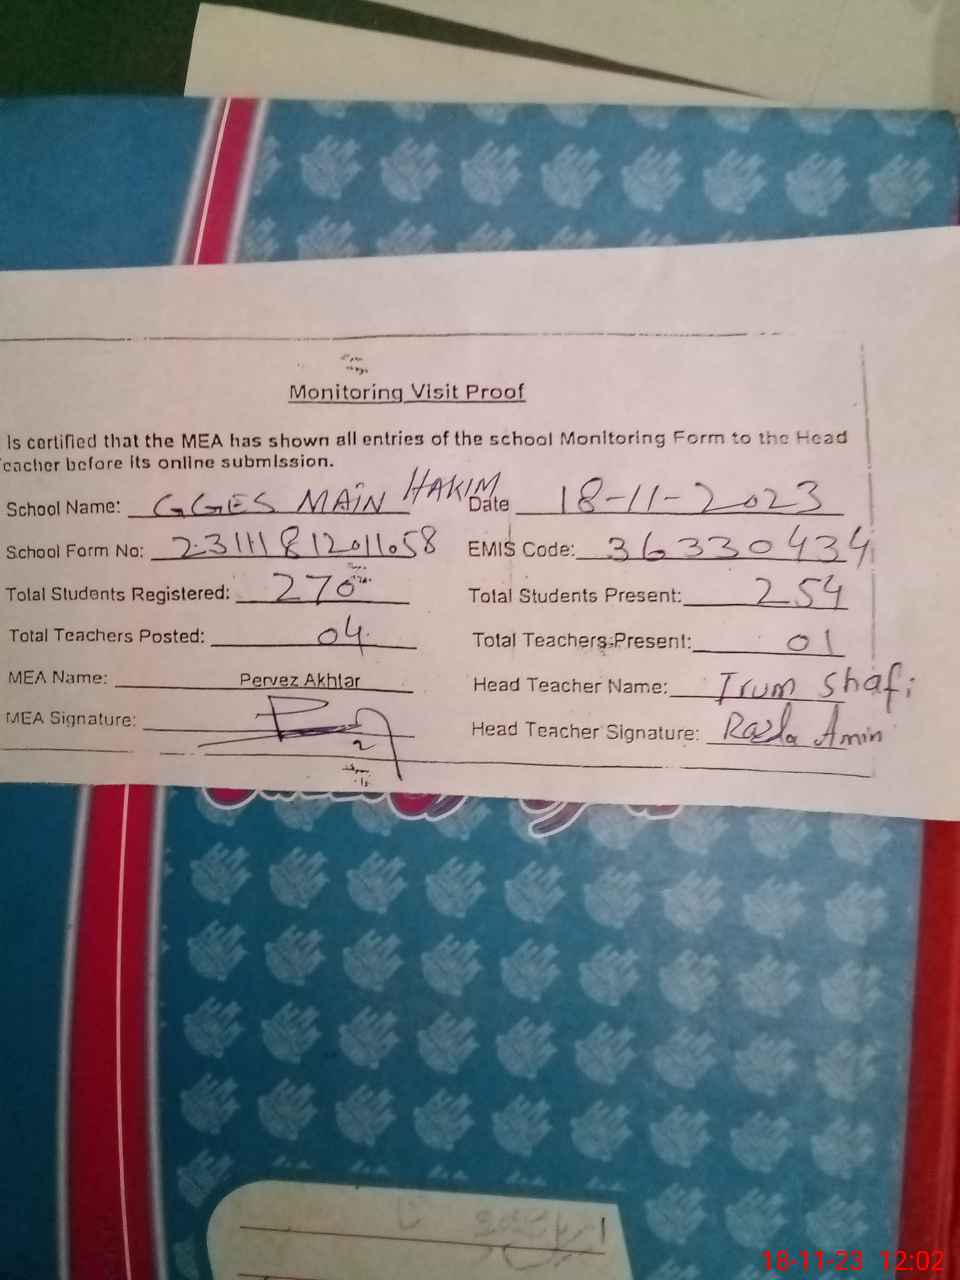 Monitoring Visit Proof
Is certified that the MEA has shown all entries of the school Monitoring Form to the Head
eacher before its online submission.
School Name: GGES MAIN HAKIM Date 18-11-2023
School Form No: 23111812011058 EMIS Code: 36330434
Total Students Registered: 270 Total Students Present: 254
Total Teachers Posted: 04 Total Teachers Present: 01
MEA Name: Pervez Akhtar Head Teacher Name: Irum Shafi
MEA Signature: Head Teacher Signature: Razla Amin
18-11-23 12:02